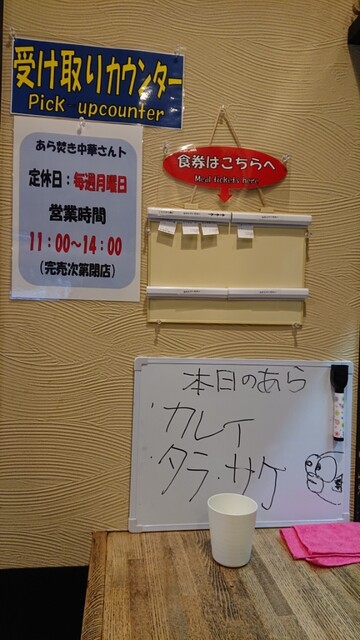 受け取りカウンター
Pick-upcounter
あら焚き中華さんト
定休日：毎週月曜日
営業時間
11：00～14：00
（完売次第閉店）
食券はこちらへ
Meal tickets here
本日のあら
・カレイ
・タラ・サケ